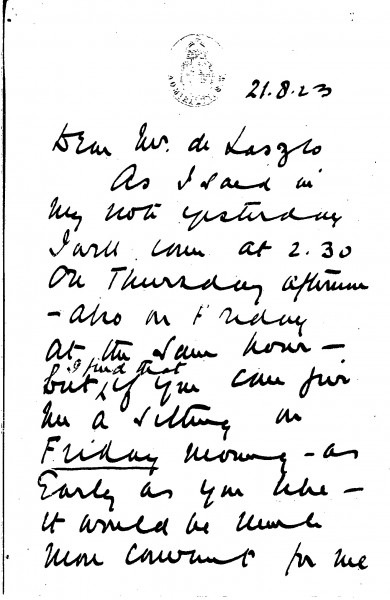 ADMIRALTY S.W.
21.8.23
Dear Mr. de Laszlo
As I said in
my note yesterday
I will come at 2.30
on Thursday afternoon
- also on Friday
at the same hour -
I find that
but, if you can give
me a sitting on
Friday morning - as
early as you like -
it would be much
more convenient for me